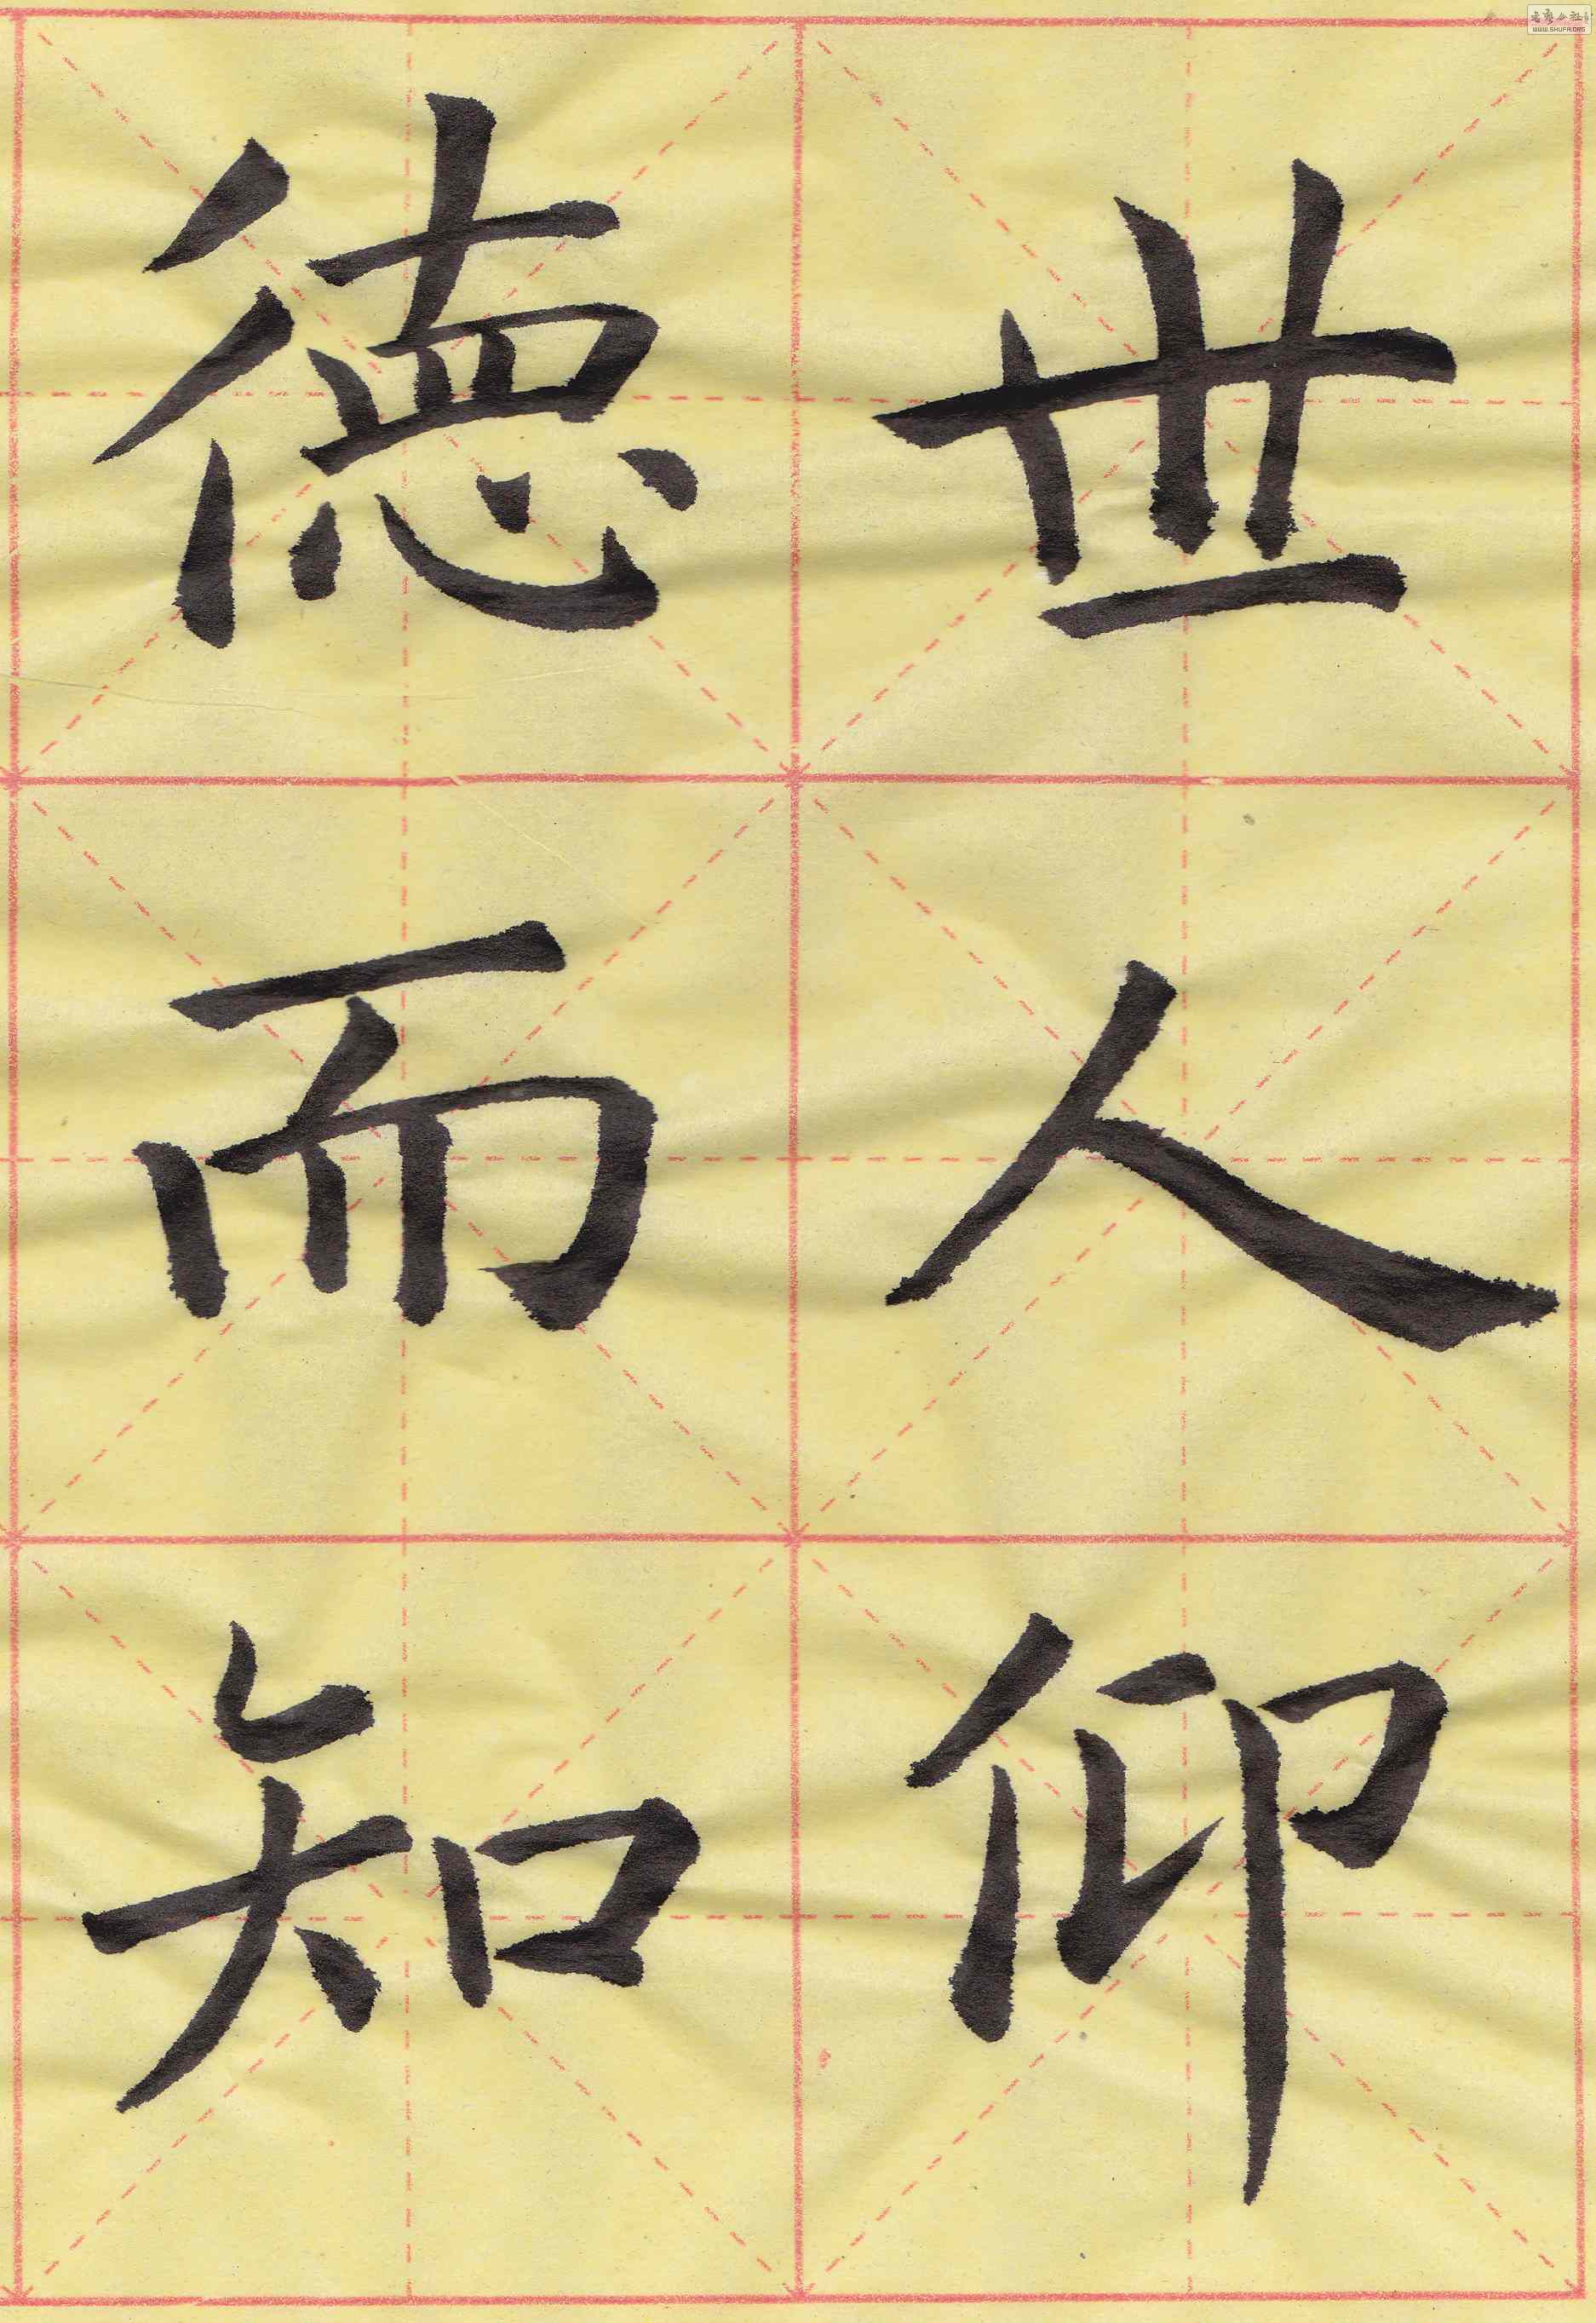 世人仰
德而知
WWW.SHUFA.ORG